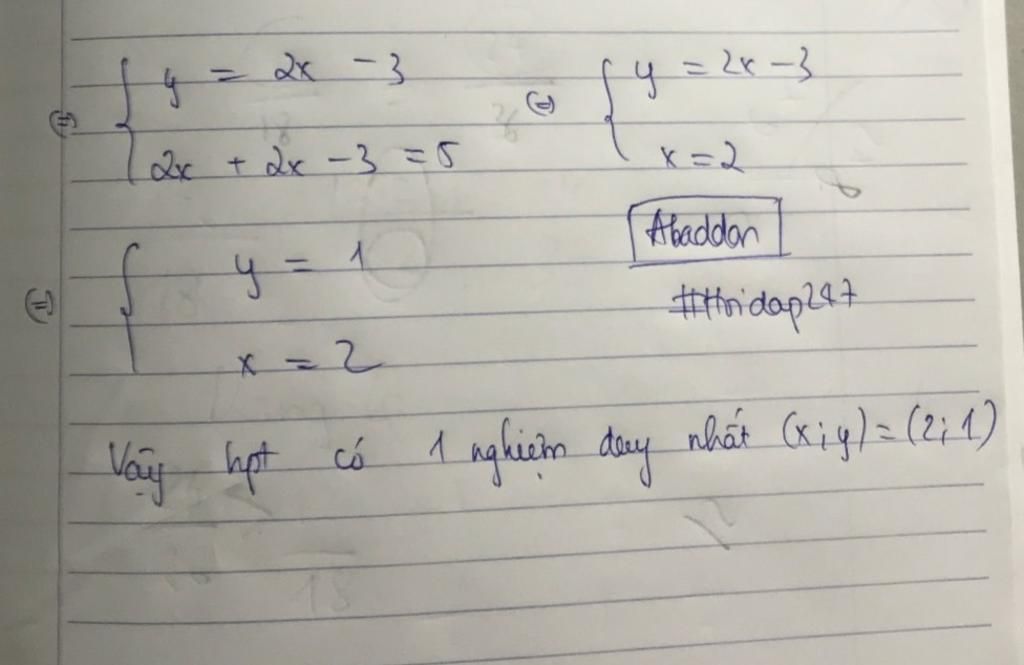 (=) { y = 2x - 3 (=) { y = 2x - 3
2x + 2x - 3 = 5 x = 2
Abaddon
(=) { y = 1
#Hoidap247
x = 2
Vậy hpt có 1 nghiệm duy nhất (x; y) = (2; 1)